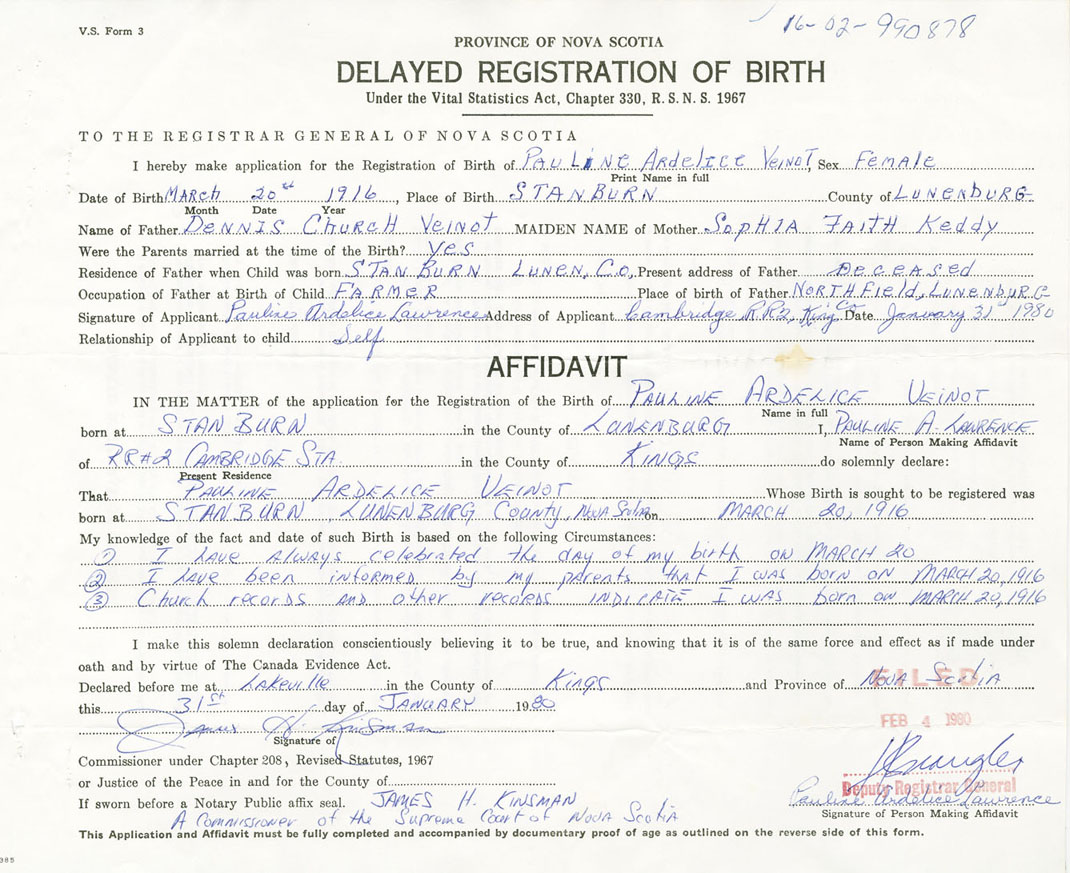 V.S. Form 3
16-02-990878
PROVINCE OF NOVA SCOTIA
DELAYED REGISTRATION OF BIRTH
Under the Vital Statistics Act, Chapter 330, R.S.N.S. 1967
TO THE REGISTRAR GENERAL OF NOVA SCOTIA
I hereby make application for the Registration of Birth of PauLiNe ArdeLice VeiNot, Sex Female
Print Name in full
Date of Birth MARCH 20st 1916, Place of Birth STANBURN County of LUNENBURG
Month Date Year
Name of Father DeNNiS CHurcH VeiNot MAIDEN NAME of Mother SopHIA FAITH Keddy
Were the Parents married at the time of the Birth? yes
Residence of Father when Child was born STANBURN LUNEN, Co, Present address of Father Deceased
Occupation of Father at Birth of Child FARMeR Place of birth of Father NORTHField, LUNENbURG
Signature of Applicant Pauline Ardelice Lawrence Address of Applicant Cambridge RR2, King Co Date January 31st 1980
Relationship of Applicant to child Self
AFFIDAVIT
IN THE MATTER of the application for the Registration of the Birth of PAULINE ARDELICE VEINOT
Name in full
born at STANBURN in the County of LUNENBURG I, PAULINE A. LAWRENCE
Name of Person Making Affidavit
of RR#2 CAMBRIDGE STA. in the County of KINGS do solemnly declare:
Present Residence
That PAULINE ARDELICE VEINOT Whose Birth is sought to be registered was
born at STANBURN, LUNENBURG County, Nova Scotia on MARCH 20, 1916
My knowledge of the fact and date of such Birth is based on the following Circumstances:
① I have always celebrated the day of my birth on MARCH 20
② I have been informed by my parents that I was born on MARCH 20, 1916
③ Church records and other records INDICATE I was born on MARCH 20, 1916
I make this solemn declaration conscientiously believing it to be true, and knowing that it is of the same force and effect as if made under
oath and by virtue of The Canada Evidence Act.
Declared before me at Lakeville in the County of Kings and Province of Nova Scotia
FILED
this 31st day of JANUARY 1980
FEB 4 1980
James H. Kinsman
Signature of
Commissioner under Chapter 208, Revised Statutes, 1967
or Justice of the Peace in and for the County of
Deputy Registrar General
If sworn before a Notary Public affix seal. JAMES H. KINSMAN
Pauline Ardelice Lawrence
A Commissioner of the Supreme Court of Nova Scotia
Signature of Person Making Affidavit
This Application and Affidavit must be fully completed and accompanied by documentary proof of age as outlined on the reverse side of this form.
385